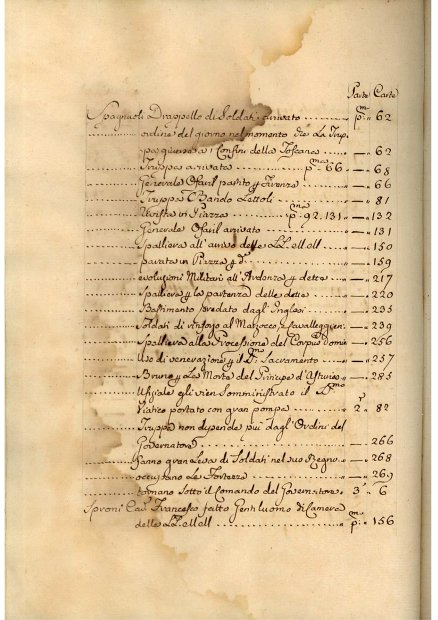 Parte Carte
Spagnuoli Drappello di Soldati arrivato .......... pma „ 62
ordine del giorno nel momento che La Trup
pa giunse a' Confini della Toscana .......... „ 62
Truppa arrivata .......... pma 66 - „ 68
Generale Ofaril partito p Firenze .......... „ 66
Truppa Bando Lettoli .......... „ 81
in Piazza .......... pma 92. 131 - „ 132
Generale Ofaril arrivato .......... „ 131
Spalliera all'arrivo delle LL. MM .......... „ 150
parata in Piazza p d.o .......... „ 159
evoluzioni Militari all'Ardenza p dette .......... „ 217
Spalliera p la partenza delle dette .......... „ 220
Bastimento predato dagl'Inglesi .......... „ 235
Soldati di rinforzo al Marzocco, e Cavalleggeri „ 239
Spalliera alla Processione del Corpus Domini „ 256
Uso di venerazione p il SS.mo Sacramento „ 257
Bruno p La Morte del Principe d'Asturias „ 285
Ufiziale gli vien Somministrato il SS.mo
Viatico portato con gran pompa .......... 2a „ 82
Truppa non dipende piu dagli Ordini del
Governatore .......... „ 266
Fanno gran Leva di Soldati nel suo Regno „ 268
occupano Le Fortezze .......... „ 269
tornano Sotto il Comando del Governatore 3a „ 6
Sproni Cav. Francesco fatto Gentiluomo di Camera
delle LL. MM .......... pma „ 156